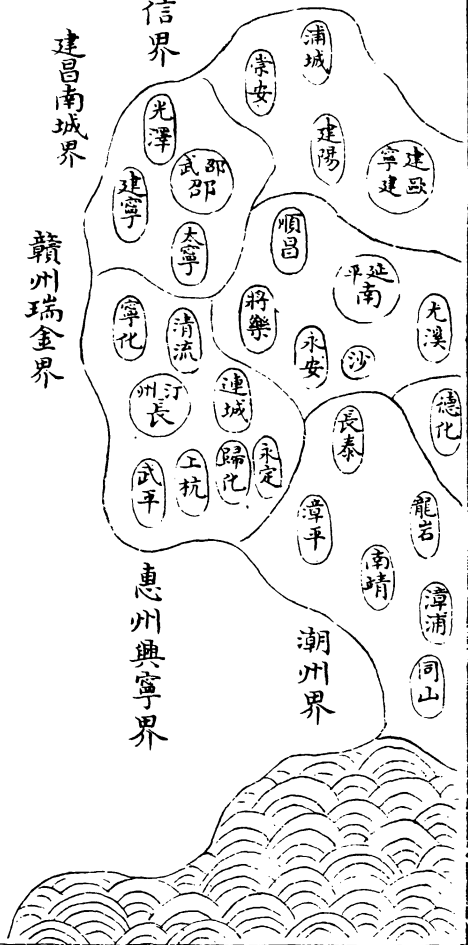 信界
建昌南城界
贛州瑞金界
惠州興寧界
潮州界
浦城
崇安
建陽
建寧
甌建
光澤
邵武
邵
建寧
太寧
順昌
延平
南
將樂
永安
沙
尤溪
寧化
清流
汀州
長
連城
歸化
永定
上杭
武平
德化
長泰
漳平
龍岩
南靖
漳浦
同山